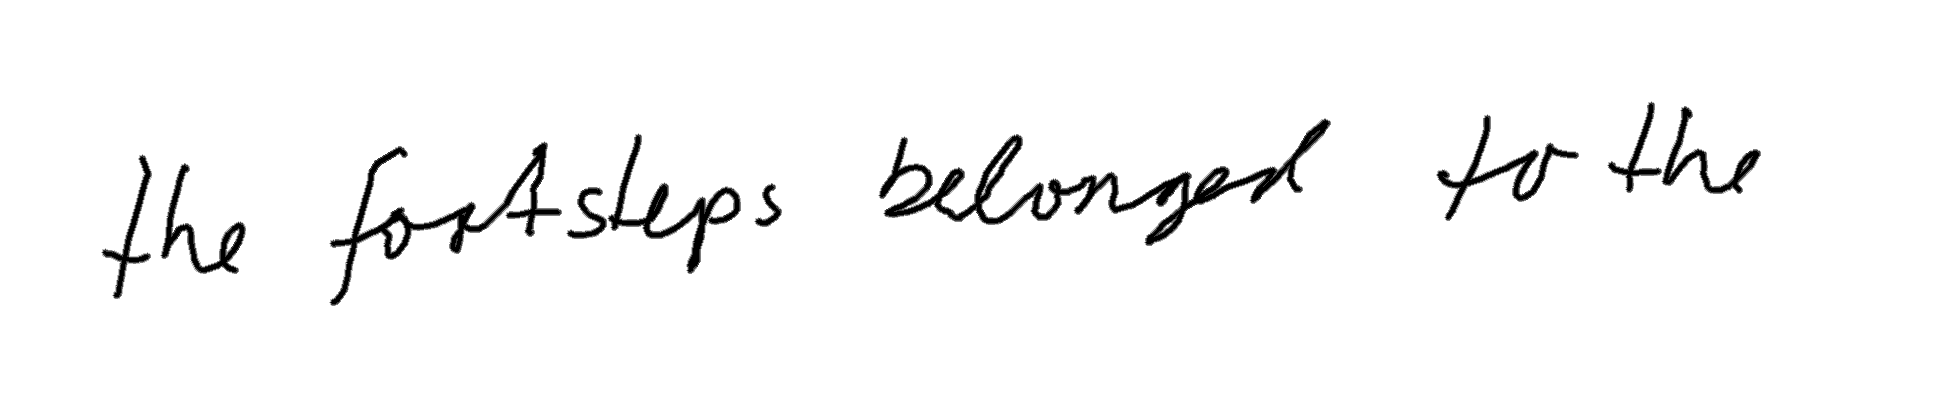 the footsteps belonged to the